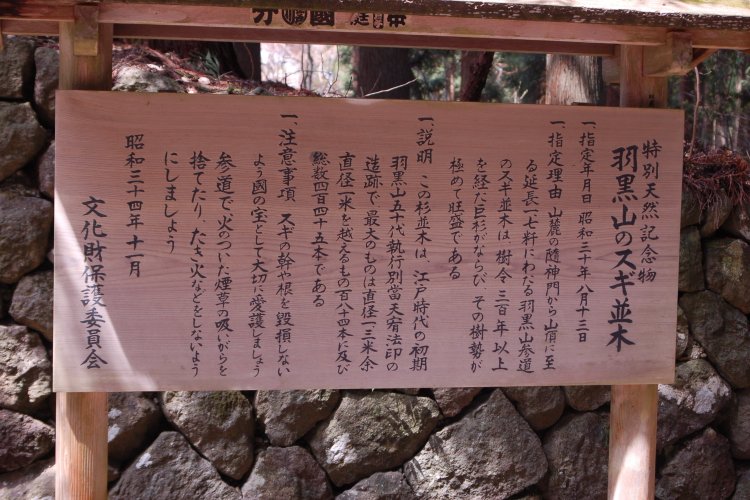 特別天然記念物
羽黒山のスギ並木
一、指定年月日 昭和三十年八月十三日
一、指定理由 山麓の随神門から山頂に至
る延長一七粁にわたる羽黒山参道
のスギ並木は、樹令三百年以上
を経た巨杉がならび その樹勢が
極めて旺盛である
一、説明 この杉並木は、江戸時代の初期
羽黒山五十代執行別當天宥法印の
造跡で最大のものは直径一三米余
直径一米を越えるもの百八十四本に及び
総数四百四十五本である
一、注意事項 スギの幹や根を毀損しない
よう國の宝として大切に愛護しましょう
参道で火のついた煙草の吸いがらを
捨てたり、たき火などをしないよう
にしましょう
昭和三十四年十一月
文化財保護委員会